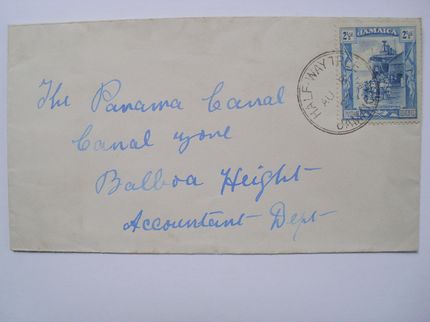 2½ JAMAICA 2½
HALF WAY TREE
AU
JAMAICA
The Panama Canal
Canal zone
Balboa Height
Accountant Dept